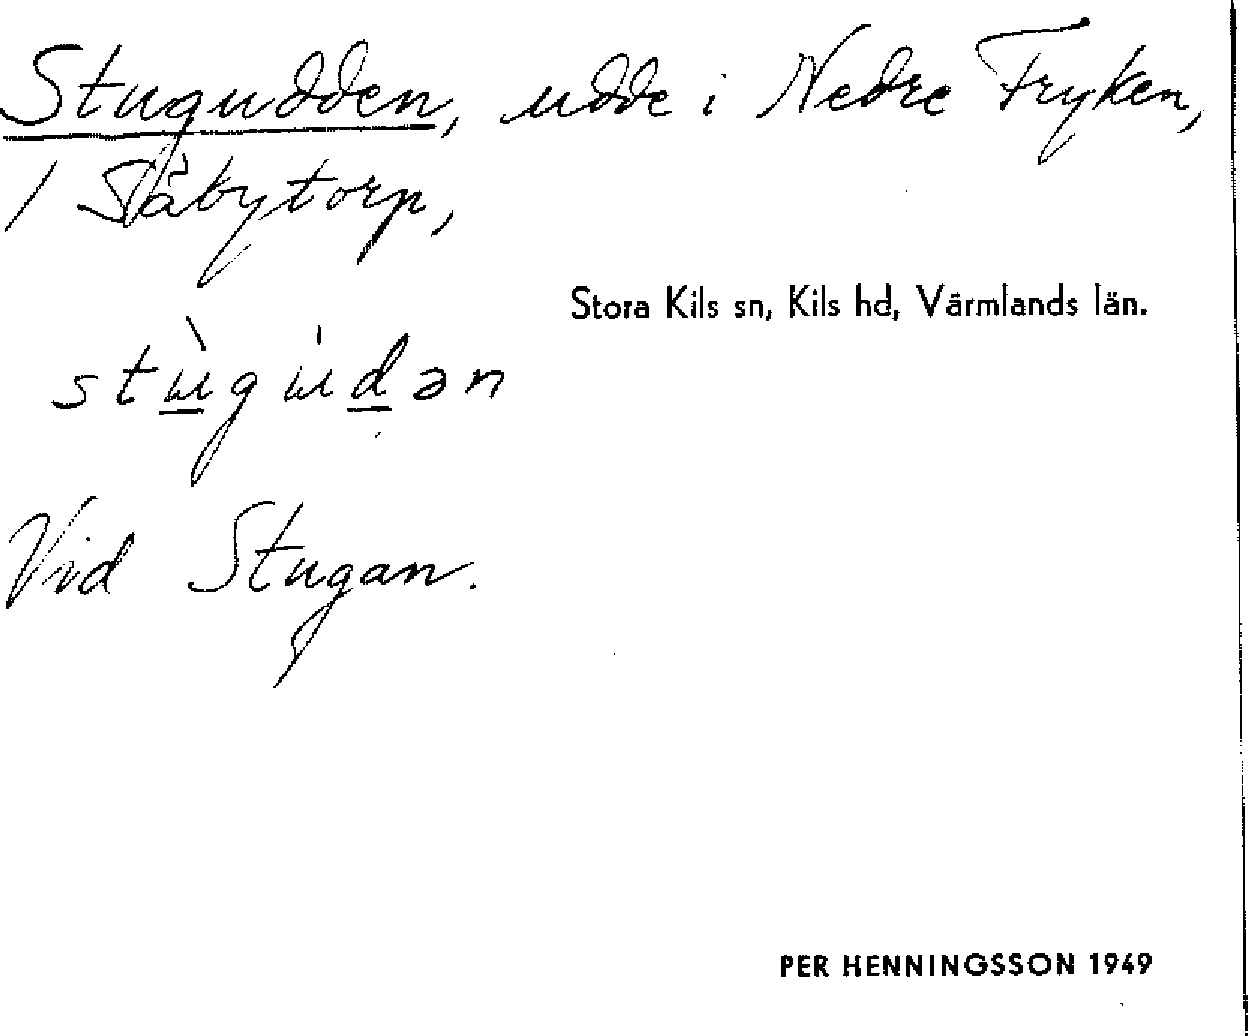 Stugudden, udde i Nedre Fryken,
1 Såbytorp,
Stora Kils sn, Kils hd, Värmlands län.
stù̲gu̇d̲ən
Vid Stugan.
PER HENNINGSSON 1949